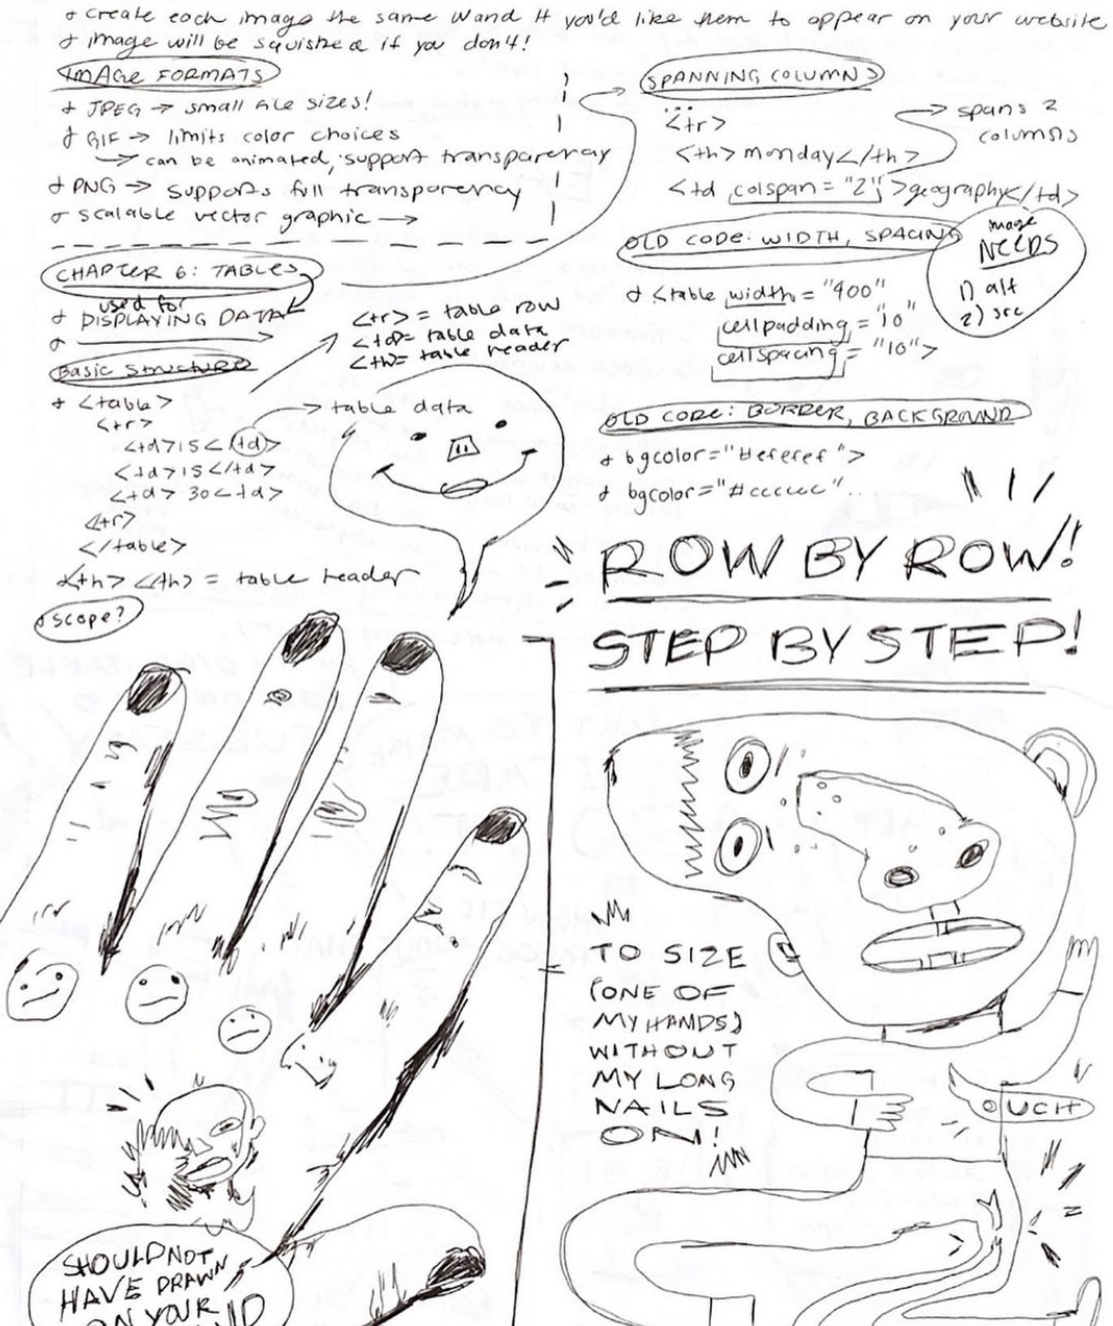 + create each image the same W and H you'd like them to appear on your website
+ image will be squished if you don't!
IMAGE FORMATS
+ JPEG → small file sizes!
+ GIF → limits color choices
→ can be animated, support transparency
+ PNG → supports full transparency
+ scalable vector graphic →
CHAPTER 6: TABLES
used for
+ DISPLAYING DATA
<tr> = table row
<td> = table data
<th> = table header
Basic Structure
+ <table>
<tr>
<td>15<td>
→ table data
<td>15</td>
<td> 30<td>
<tr>
</table>
<th> <th> = table header
+ scope?
SPANNING COLUMNS
<tr>
<th>monday</th>
→ spans 2
columns
<td colspan = "2">geography</td>
OLD CODE: WIDTH, SPACING
+ <table width = "400"
cellpadding = "10"
cellspacing = "10">
image
NEEDS
1) alt
2) src
OLD CODE: BORDER, BACKGROUND
+ bgcolor="#efefef">
+ bgcolor="#cccccc"
ROW BY ROW!
STEP BY STEP!
TO SIZE
(ONE OF
MY HANDS)
WITHOUT
MY LONG
NAILS
ON!
OUCH
SHOULD NOT
HAVE DRAWN
ON YOUR